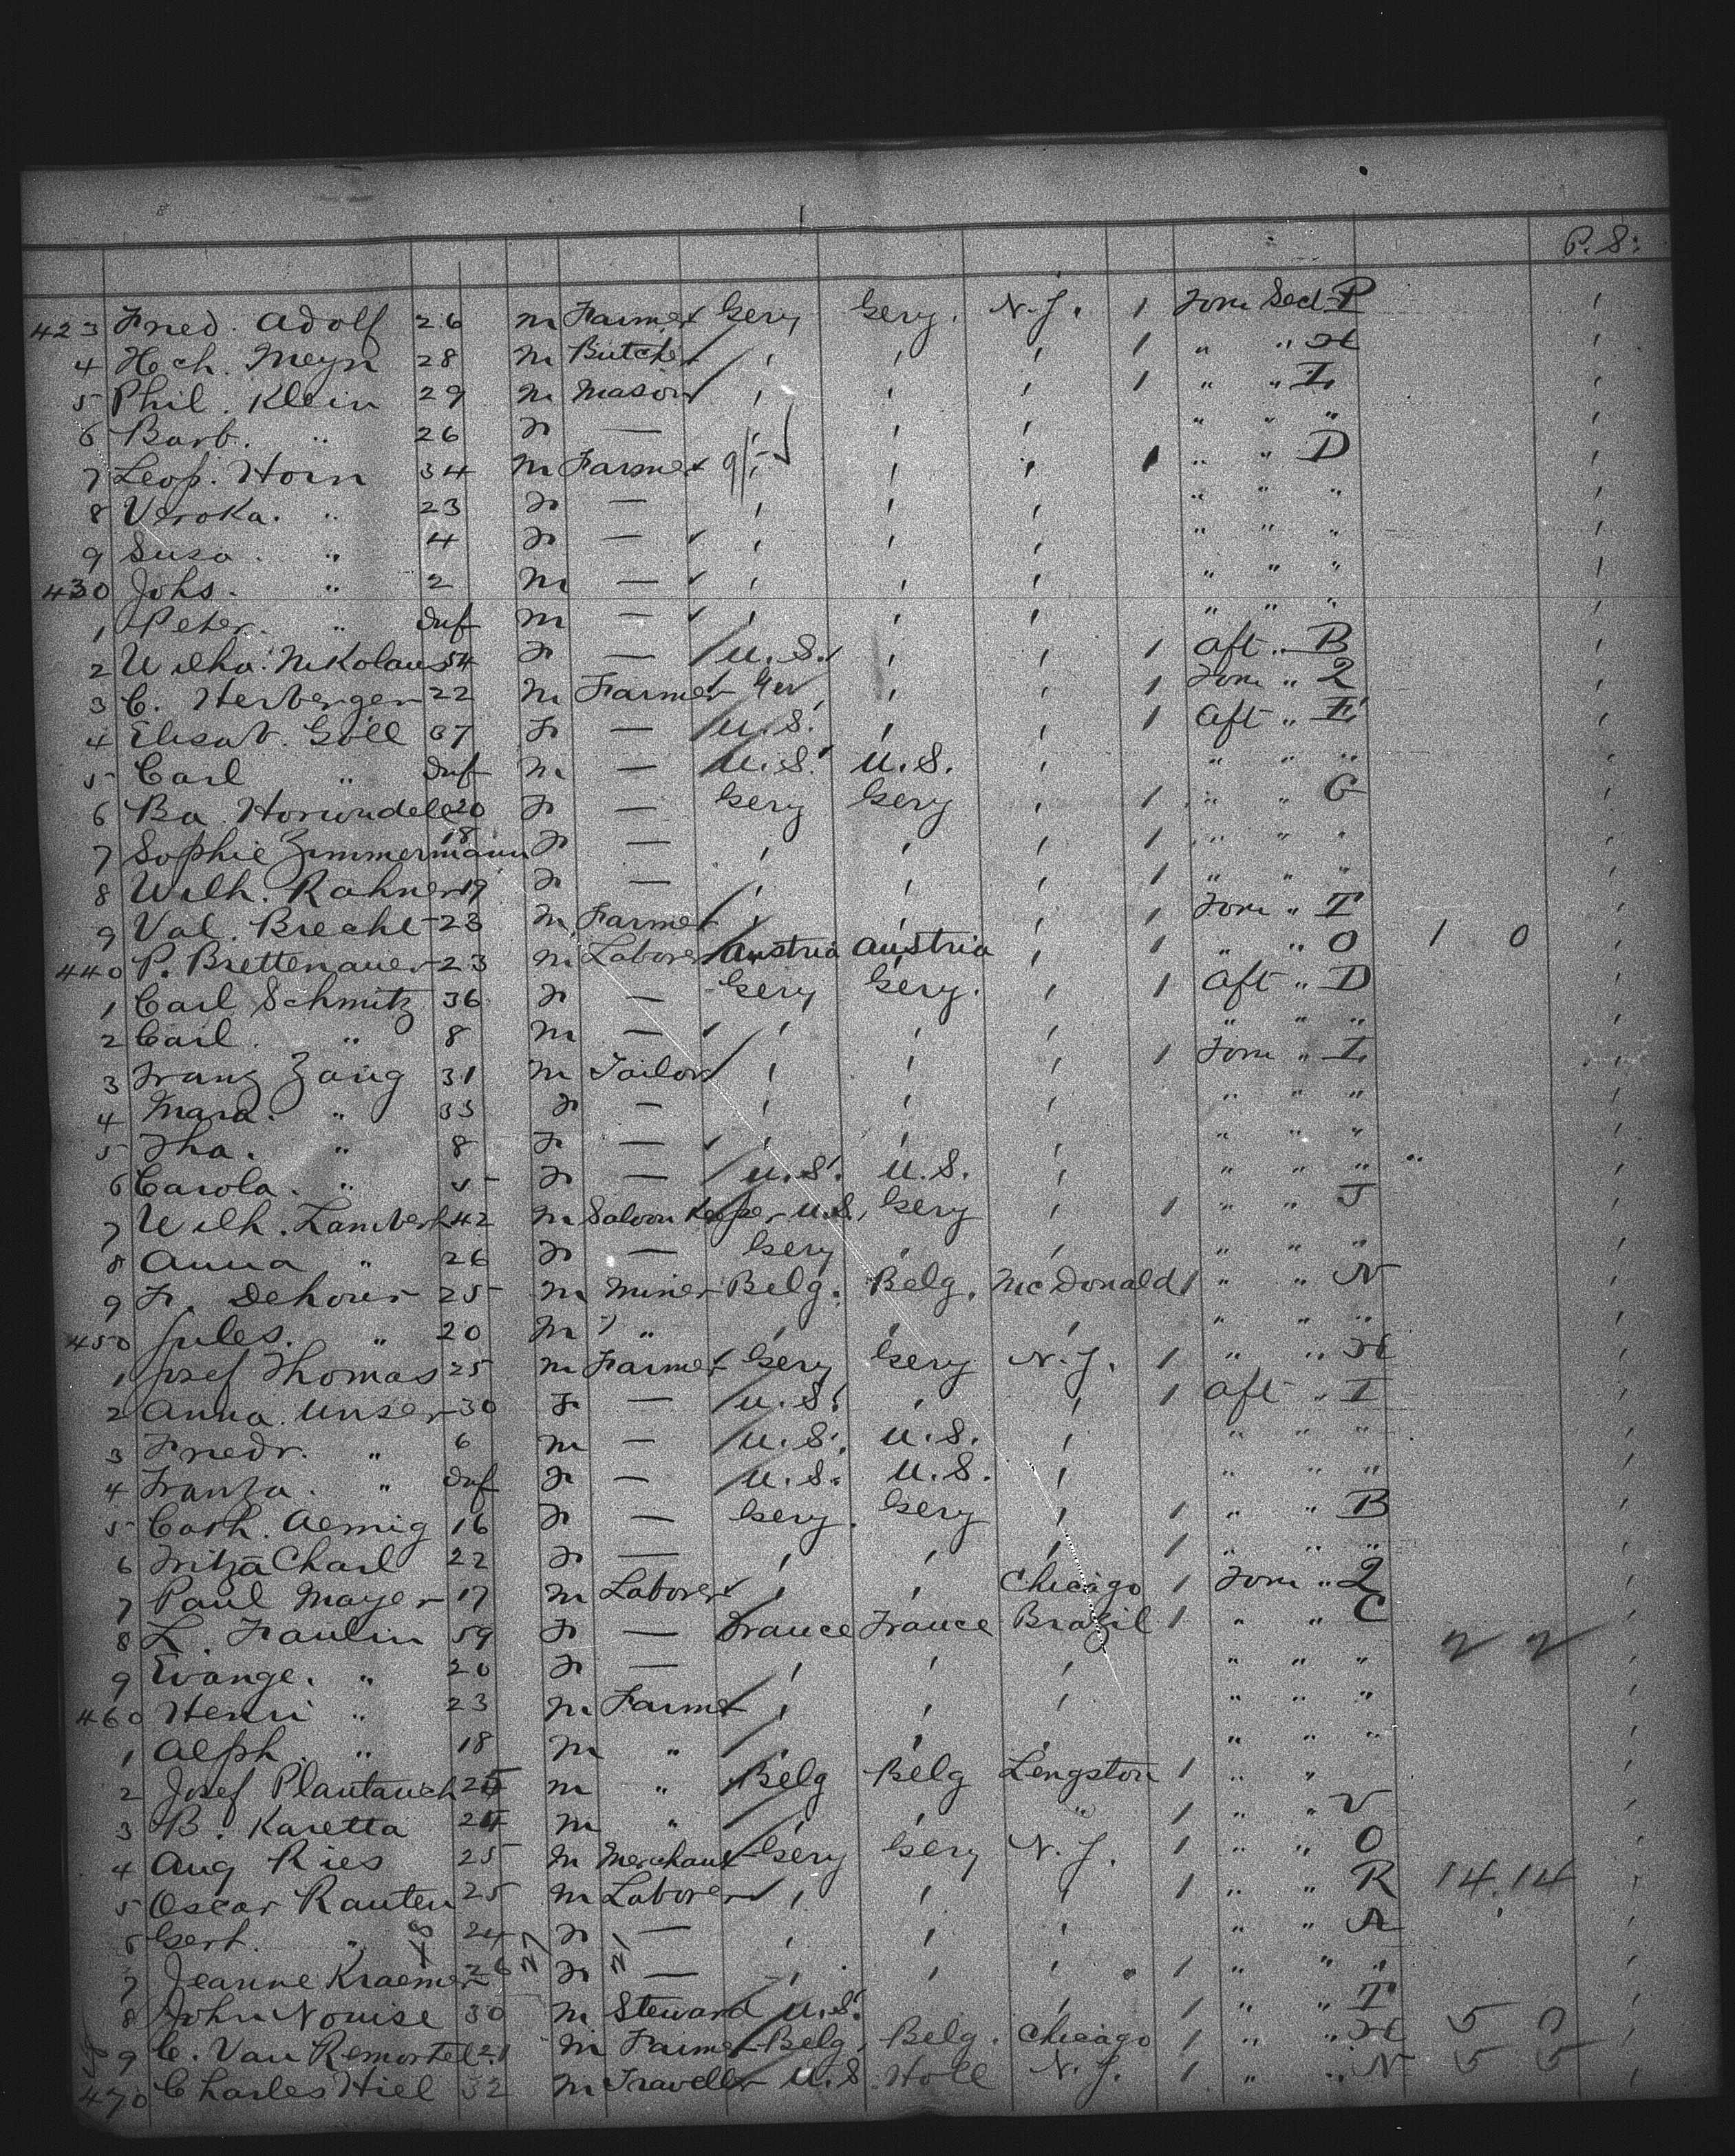 P. S:
423 Fried. Adolf 26 m Farmer Gery Gery. N.J. 1 Forw Sect P
4 Hch. Meyn 28 m Butcher ' ' ' 1 " " H
5 Phil. Klein 29 m Mason ' ' ' 1 " " I
6 Barb. " 26 F — ' ' ' " " "
7 Leop. Horn 34 m Farmer ' ' ' 1 " " D
8 Veroka. " 23 F — ' ' ' " " "
9 Susa. " 4 F — ' ' ' " " "
430 Johs. " 2 m — ' ' ' " " "
1 Peter. " Inf m — ' ' ' " " "
2 Wilha. Nikolaus 54 F — U.S. ' ' 1 Aft " B
3 C. Herberger 22 m Farmer Ger ' ' 1 Forw " Q
4 Elisab. Göll 37 F — U.S. ' ' 1 Aft " E
5 Carl " Inf m — U.S. U.S. ' " " "
6 Ba 20 F — Gery Gery ' 1 " " G
7 Sophie Zimmermann 18 F — ' ' ' 1 " " "
8 Wilh. Rahner 19 F — ' ' ' 1 " " "
9 Val. Brecht 23 m Farmer ' ' ' 1 Forw " T
440 P. Brettenauer 23 m Laborer Austria Austria ' 1 " " O 1 0
1 Carl Schmitz 36 F — Gery Gery. ' 1 Aft " D
2 Carl. " 8 m — ' ' ' " " "
3 Franz Zang 31 m Tailor ' ' ' 1 Forw " I
4 Mara. " 33 F — ' ' ' " " "
5 Tha. " 8 F — ' ' ' " " "
6 Carola. " 5 F — U.S. U.S. ' " " "
7 Wilh. Lambert 42 m Saloon Keeper U.S. Gery ' 1 " " T
8 Anna " 26 F — Gery ' ' " " "
9 F. Dehour 25 m Miner Belg. Belg. McDonald 1 " " N
450 Jules. " 20 m " ' ' ' " " "
1 Josef Thomas 25 m Farmer Gery Gery N.J. 1 " " H
2 Anna. Unser 30 F — U.S. ' ' 1 Aft " I
3 Friedr. " 6 m — U.S. U.S. ' " " "
4 Franza. " Inf F — U.S. U.S. ' " " "
5 Cath. Aemig 16 F — Gery. Gery ' 1 " " B
6 Charl 22 F — ' ' ' 1 " " "
7 Paul Mayer 17 m Laborer ' ' Chicago 1 Forw " Q
8 L. Faulin 59 F — France France Brazil 1 " " C 2 2
9 Evange. " 20 F — ' ' ' " " "
460 Henri " 23 m Farmer ' ' ' " " "
1 Alph. " 18 m " ' ' ' " " "
2 Josef Plantauch 25 m " Belg Belg Lengston 1 " "
3 B. Karetta 24 m " ' ' " 1 " " V
4 Aug Ries 25 m Merchant Gery Gery N.J. 1 " " O
5 Oscar Rauten 25 m Laborer ' ' ' 1 " " R 14.14
6 Gert. " 24 F — ' ' ' " "
7 Jeanne Kraemer 26 F — ' ' ' 1 " " "
8 John Nouise 30 m Steward U.S. ' 1 " " T
9 C. Van Remortel 21 m Farmer Belg. Belg. Chicago 1 " " H 5 0
470 Charles Hiel 32 m Traveller U.S. Holl N.J. 1 " " N 5 5